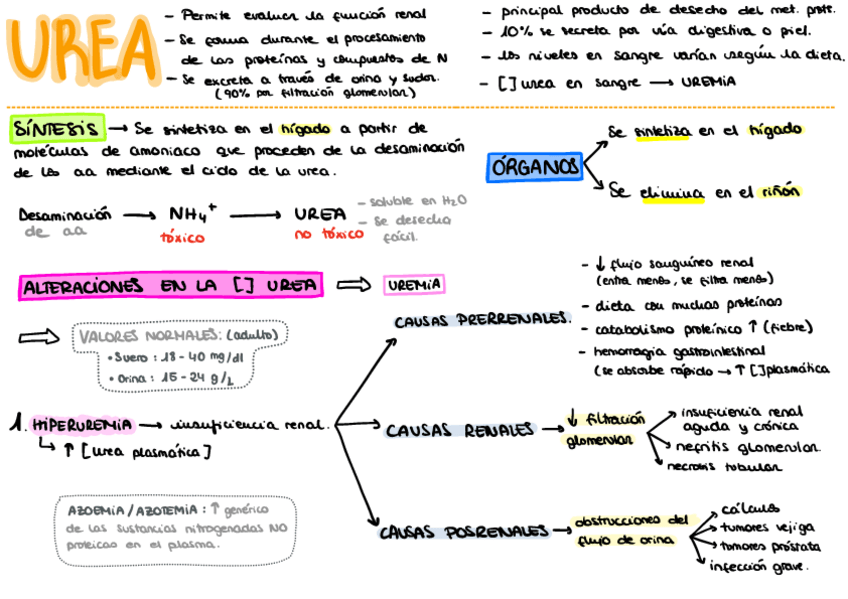 UREA
- Permite evaluar la función renal
- Se forma durante el procesamiento
de las proteínas y compuestos de N
- Se excreta a través de orina y sudor.
(90% por filtración glomerular)
- principal producto de desecho del met. prot.
- 10% se secreta por vía digestiva o piel.
- los niveles en sangre varían según la dieta.
- [ ] urea en sangre → UREMIA
SÍNTESIS → Se sintetiza en el hígado a partir de
moléculas de amoniaco que proceden de la desaminación
de los aa mediante el ciclo de la urea.
ÓRGANOS
Se sintetiza en el hígado
Se elimina en el riñón
Desaminación → NH4+ → UREA
de aa
tóxico
no tóxico
- soluble en H2O
- se desecha
fácil.
ALTERACIONES EN LA [ ] UREA ⇒ UREMIA
⇒ VALORES NORMALES: (adulto)
• Suero: 18-40 mg/dl
• Orina: 15-24 g/L
1. HIPERUREMIA → insuficiencia renal.
↳ ↑ [urea plasmática]
AZOEMIA / AZOTEMIA: ↑ genérico
de las sustancias nitrogenadas NO
proteicas en el plasma.
CAUSAS PRERRENALES.
- ↓ flujo sanguíneo renal
(entra menos, se filtra menos)
- dieta con muchas proteínas
- catabolismo proteínico ↑ (fiebre)
- hemorragia gastrointestinal
(se absorbe rápido → ↑ [ ] plasmática
CAUSAS RENALES → ↓ filtración
glomerular
insuficiencia renal
aguda y crónica
nefritis glomerular.
necrosis tubular
CAUSAS POSRENALES → obstrucciones del
flujo de orina
cálculos
tumores vejiga
tumores próstata
infección grave.